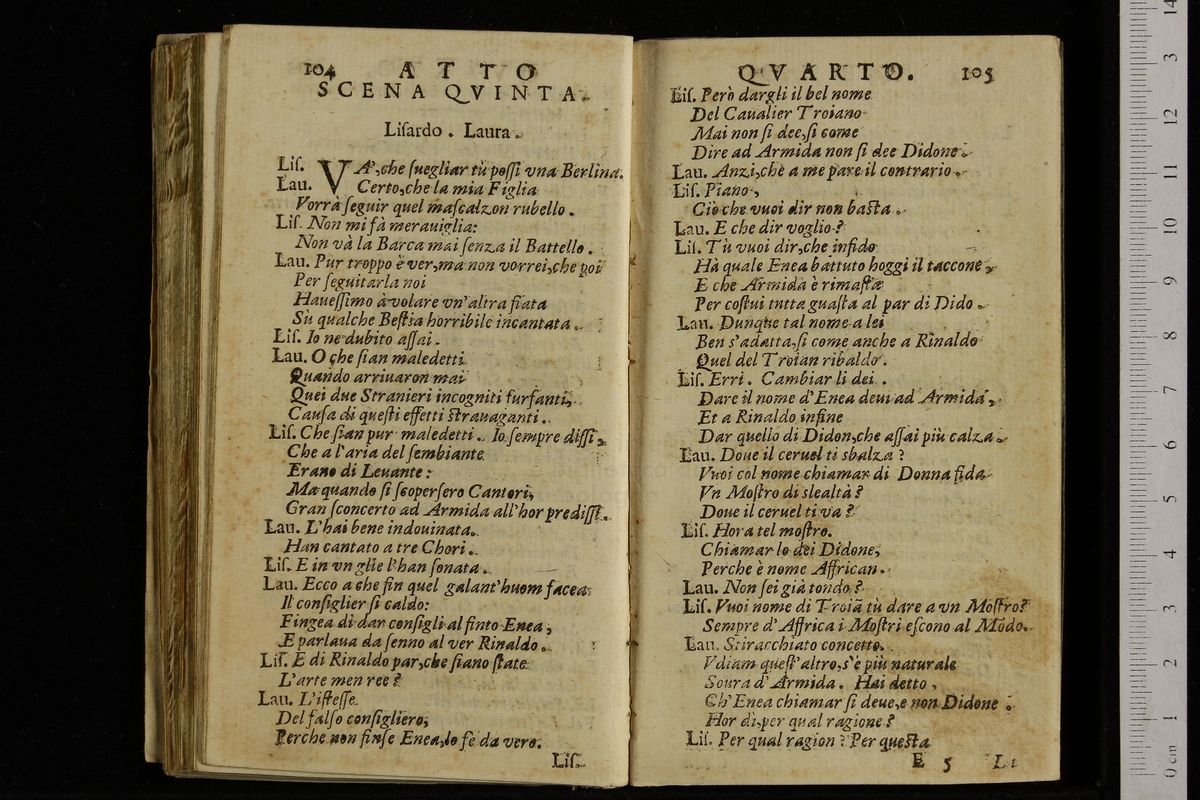 104 ATTO
SCENA QVINTA.
Liſardo. Laura.
Liſ. VA', che ſuegliar tù poſſi vna Berlina.
Lau. Certo, che la mia Figlia
Vorrà ſeguir quel maſcalzon rubello.
Liſ. Non mi fà merauiglia:
Non và la Barca mai ſenza il Battello.
Lau. Pur troppo è ver, ma non vorrei, che poi
Per ſeguitarla noi
Haueſſimo à volare vn'altra fiata
Su qualche Beſtia horribile incantata.
Liſ. Io ne dubito aſſai.
Lau. O che ſian maledetti
Quando arriuaron mai
Quei due Stranieri incogniti furfanti,
Cauſa di queſti effetti ſtrauaganti.
Liſ. Che ſian pur maledetti. Io ſempre diſſi,
Che a l'aria del ſembiante
Erano di Leuante:
Ma quando ſi ſcoperſero Cantori,
Gran ſconcerto ad Armida all'hor prediſſi.
Lau. L'hai bene indouinata.
Han cantato a tre Chori.
Liſ. E in vn glie l'han ſonata.
Lau. Ecco a che fin quel galant'huom facea
Il conſiglier ſi caldo:
Fingea di dar conſigli al finto Enea,
E parlaua da ſenno al ver Rinaldo.
Liſ. E di Rinaldo par, che ſiano ſtate
L'arte men ree?
Lau. L'iſteſſe
Del falſo conſigliero,
Perche non finſe Enea, lo fè da vero.
Liſ.
QVARTO. 105
Liſ. Però dargli il bel nome
Del Caualier Troiano
Mai non ſi dee, ſi come
Dire ad Armida non ſi dee Didone.
Lau. Anzi, chè a me pare il contrario.
Liſ. Piano,
Ciò che vuoi dir non baſta.
Lau. E che dir voglio?
Liſ. Tù vuoi dir, che infido
Hà quale Enea battuto hoggi il taccone,
E che Armida è rimaſta
Per coſtui tutta guaſta al par di Dido.
Lau. Dunque tal nome a lei
Ben s'adatta, ſi come anche a Rinaldo
Quel del Troian ribaldo.
Liſ. Erri. Cambiar li dei.
Dare il nome d'Enea deui ad Armida,
Et a Rinaldo infine
Dar quello di Didon, che aſſai più calza.
Lau. Doue il ceruel ti sbalza?
Vuoi col nome chiamar di Donna fida
Vn Moſtro di slealtà?
Doue il ceruel ti va?
Liſ. Hora tel moſtro.
Chiamar lo dei Didone,
Perche è nome Affrican.
Lau. Non ſei già tondo?
Liſ. Vuoi nome di Troiā tù dare a vn Moſtro?
Sempre d'Affrica i Moſtri eſcono al Mōdo.
Lau. Stiracchiato concetto.
Vdiam queſt'altro, s'è più naturale
Soura d'Armida. Hai detto,
Ch'Enea chiamar ſi deue, e non Didone.
Hor dì, per qual ragione?
Liſ. Per qual ragion? Per queſta
E 5 Li